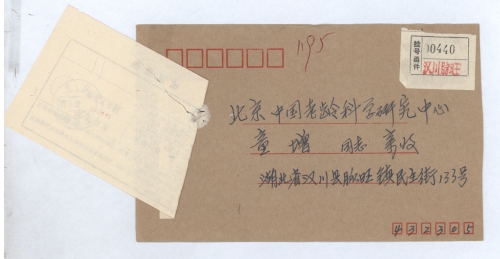 1195
挂号函件
00440
汉川脉旺
北京中国老龄科学研究中心
童增 同志 亲收
湖北省汉川县脉旺镇民主街133号
432305